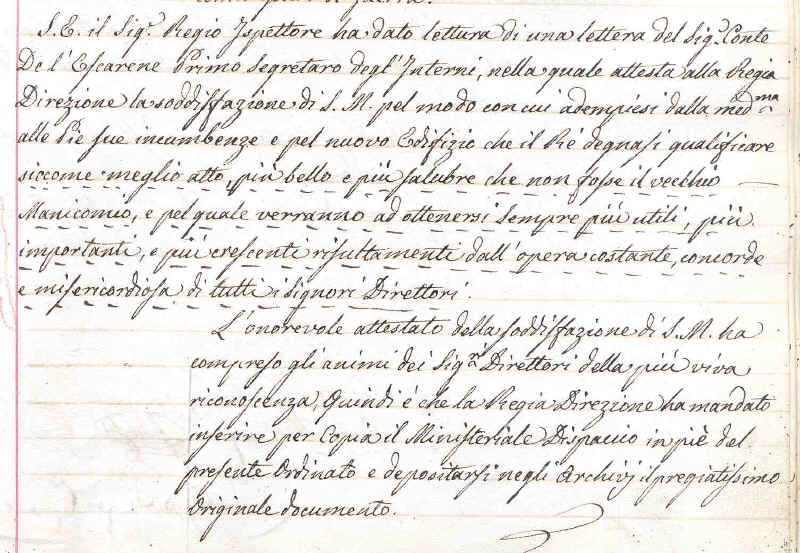 S. E. il Sig.r Regio Ispettore ha dato lettura di una lettera del Sig.r Conte
De l'Escarene Primo Segretaro degl'Interni, nella quale attesta alla Regia
Direzione la soddisfazione di S. M. pel modo con cui adempiesi dalla med.ma
alle Pie sue incumbenze e pel nuovo Edifizio che il Ré degnasi qualificare
siccome meglio atto, più bello e più salubre che non fosse il vecchio
Manicomio, e pel quale verranno ad ottenersi sempre più utili, più
importanti, e più crescenti risultamenti dall'opera costante, concorde
e misericordiosa di tutti i signori Direttori.
L'onorevole attestato della soddisfazione di S. M. ha
compreso gli animi dei Sig.ri Direttori della più viva
riconoscenza, Quindi é che la Regia Direzione ha mandato
inserire per Copia il Ministeriale Dispaccio in piè del
presente Ordinato e depositarsi negli Archivj il pregiatissimo
Originale documento.